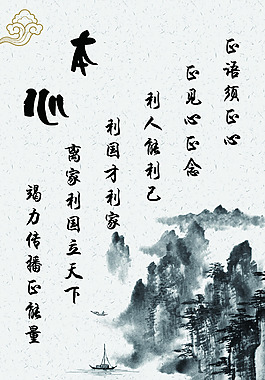 本心
正语须正心
正见心正念
利人能利己
利国才利家
离家利国立天下
竭力传播正能量